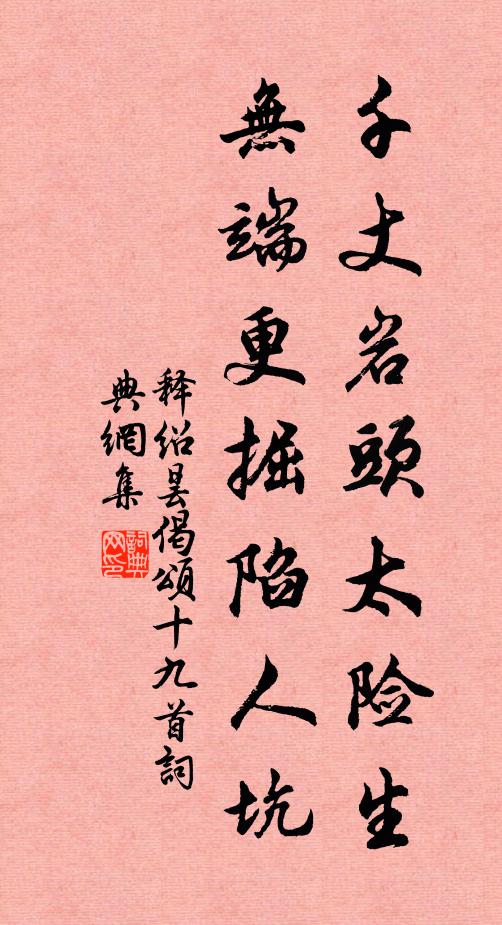 千丈岩頭太险生
無端更掘陷人坑
释绍昙偈頌十九首詞
典網集
詞典网印